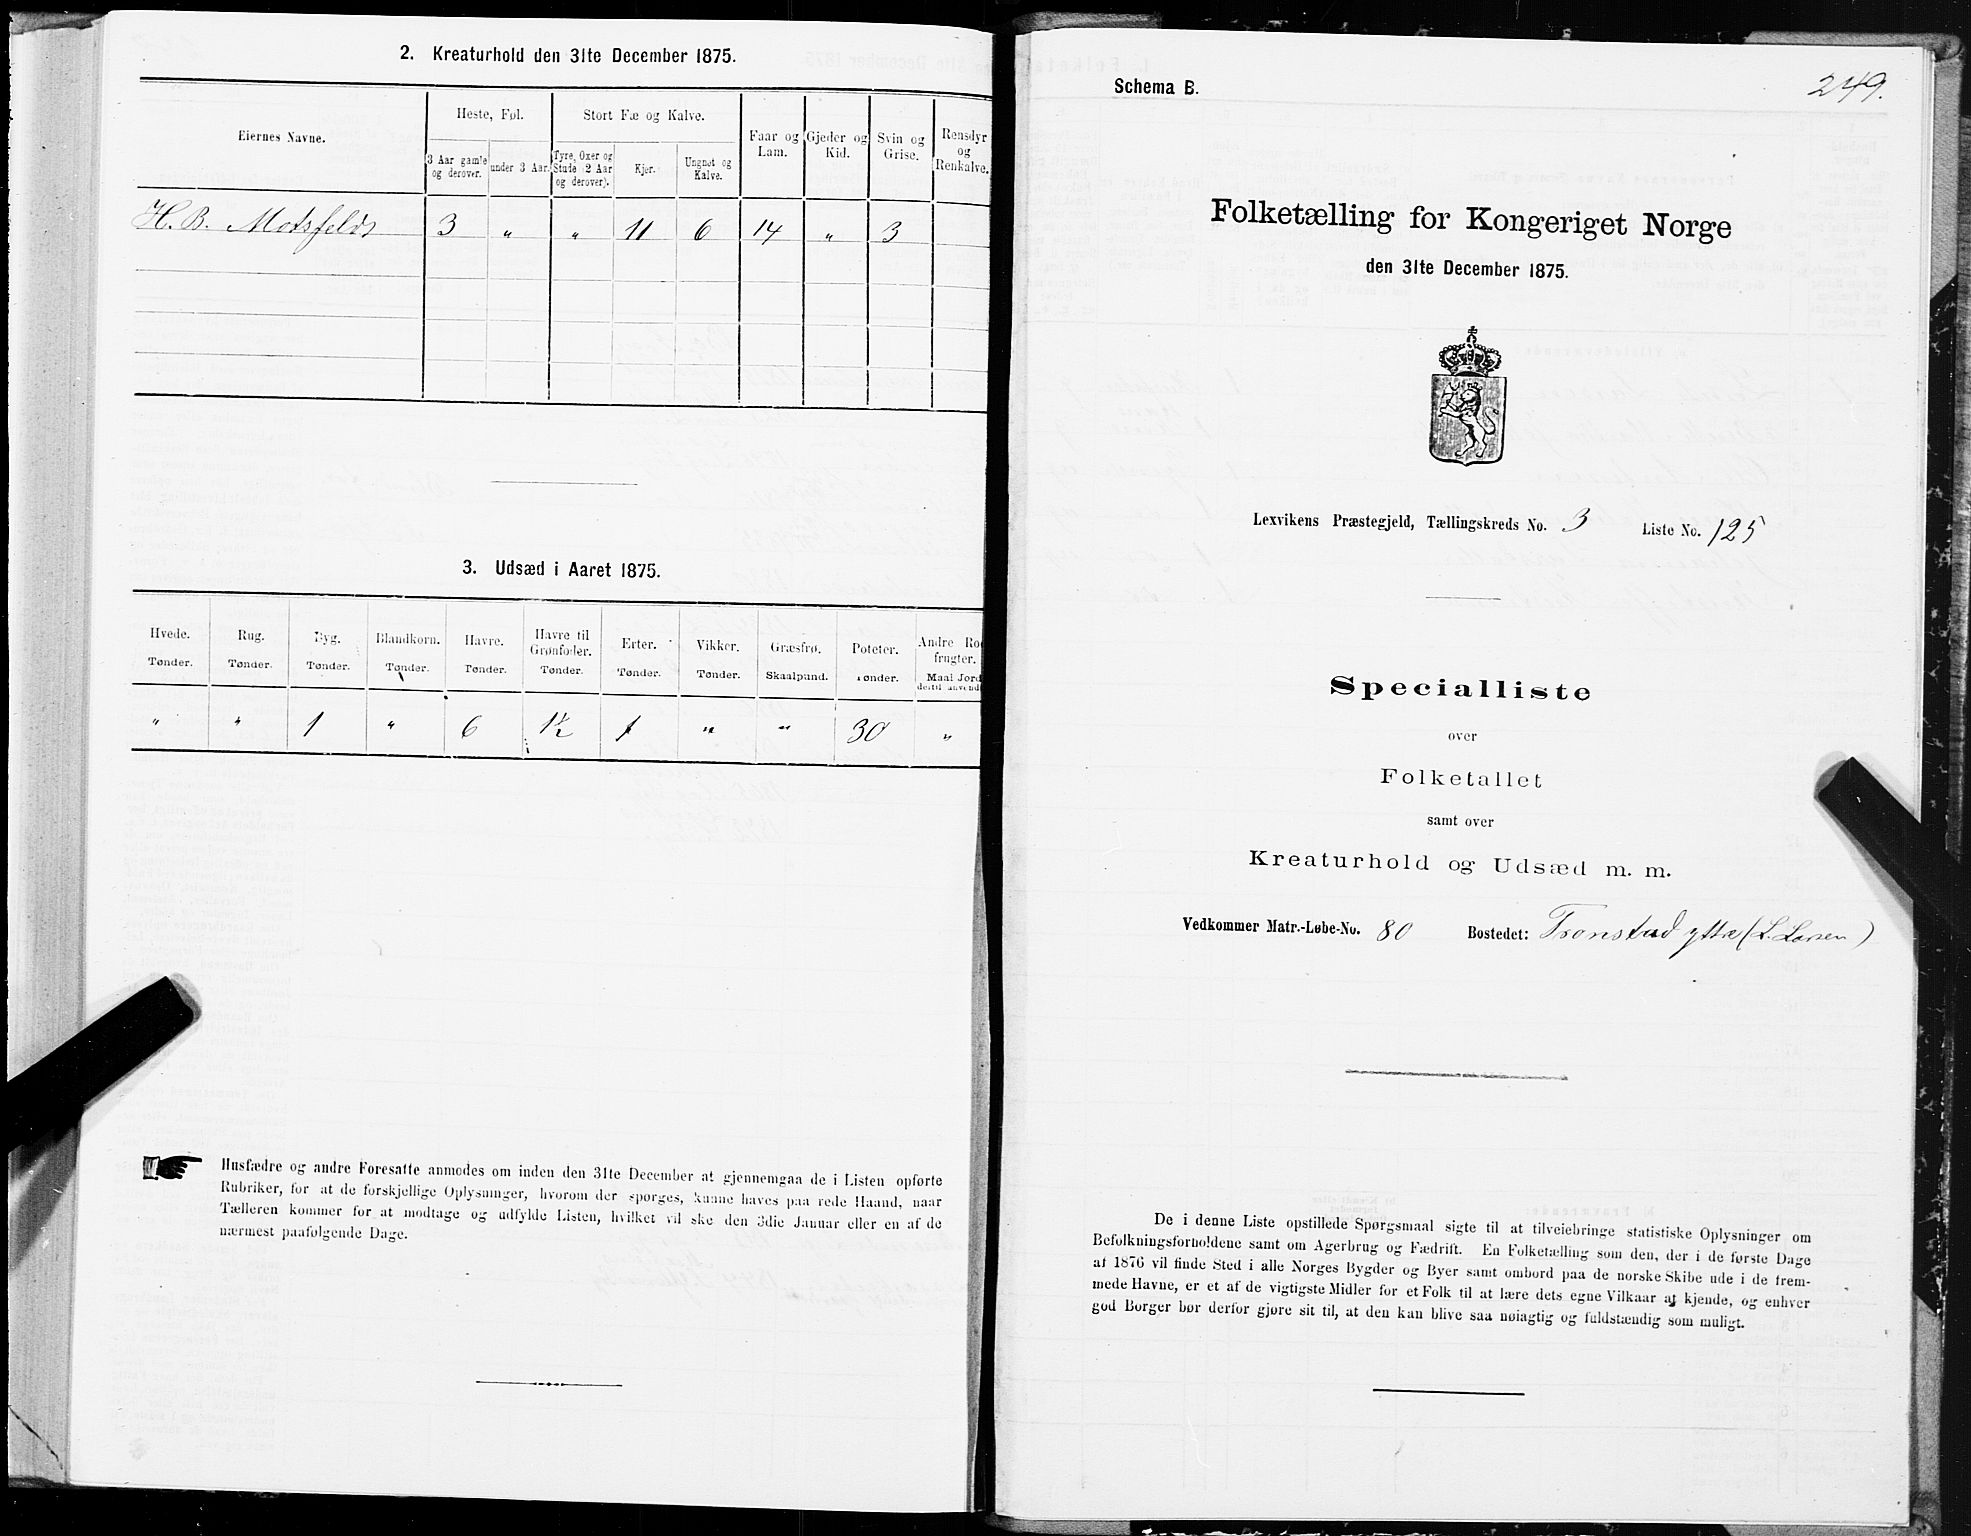 2. Kreaturhold den 31te December 1875.
Eiernes Navne.
Heste, Føl.
Stort Fæ og Kalve.
Faar og Lam.
Gjeder og Kid.
Svin og Grise.
Rensdyr og Renkalve.
3 Aar gamle og derover.
under 3 Aar.
Tyre, Oxer og Stude (2 Aar og derover).
Kjer.
Ungnøt og Kalve.
H. B. Motsfeldt 3 " " 11 6 14 " 3
3. Udsæd i Aaret 1875.
Hvede. Rug. Byg. Blandkorn. Havre. Havre til Grønfoder. Erter. Vikker. Græsfrø. Poteter. Andre Ro- frugter.
Tønder. Tønder. Tønder. Tønder. Tønder. Tønder. Tønder. Tønder. Skaalpund. Tønder. Maal Jord dertil anvendt
" " 1 " 6 1½ 1 " " 30 "
Husfædre og andre Foresatte anmodes om inden den 31te December at gjennemgaa de i Listen opførte
Rubriker, for at de forskjellige Oplysninger, hvorom der spørges, kunne haves paa rede Haand, naar
Tælleren kommer for at modtage og udfylde Listen, hvilket vil ske den 3die Januar eller en af de
nærmest paafølgende Dage.
Schema B.
249.
Folketælling for Kongeriget Norge
den 31te December 1875.
Lexvikens Præstegjeld, Tællingskreds No. 3 Liste No. 125
Specialliste
over
Folketallet
samt over
Kreaturhold og Udsæd m. m.
Vedkommer Matr.-Løbe-No. 80 Bostedet: Tronstad yttre (L. Larsen)
De i denne Liste opstillede Spørgsmaal sigte til at tilveiebringe statistiske Oplysninger om
Befolkningsforholdene samt om Agerbrug og Fædrift. En Folketælling som den, der i de første Dage
af 1876 vil finde Sted i alle Norges Bygder og Byer samt ombord paa de norske Skibe ude i de frem-
mede Havne, er et af de vigtigste Midler for et Folk til at lære dets egne Vilkaar at kjende, og enhver
god Borger bør derfor gjøre sit til, at den kan blive saa nøiagtig og fuldstændig som muligt.